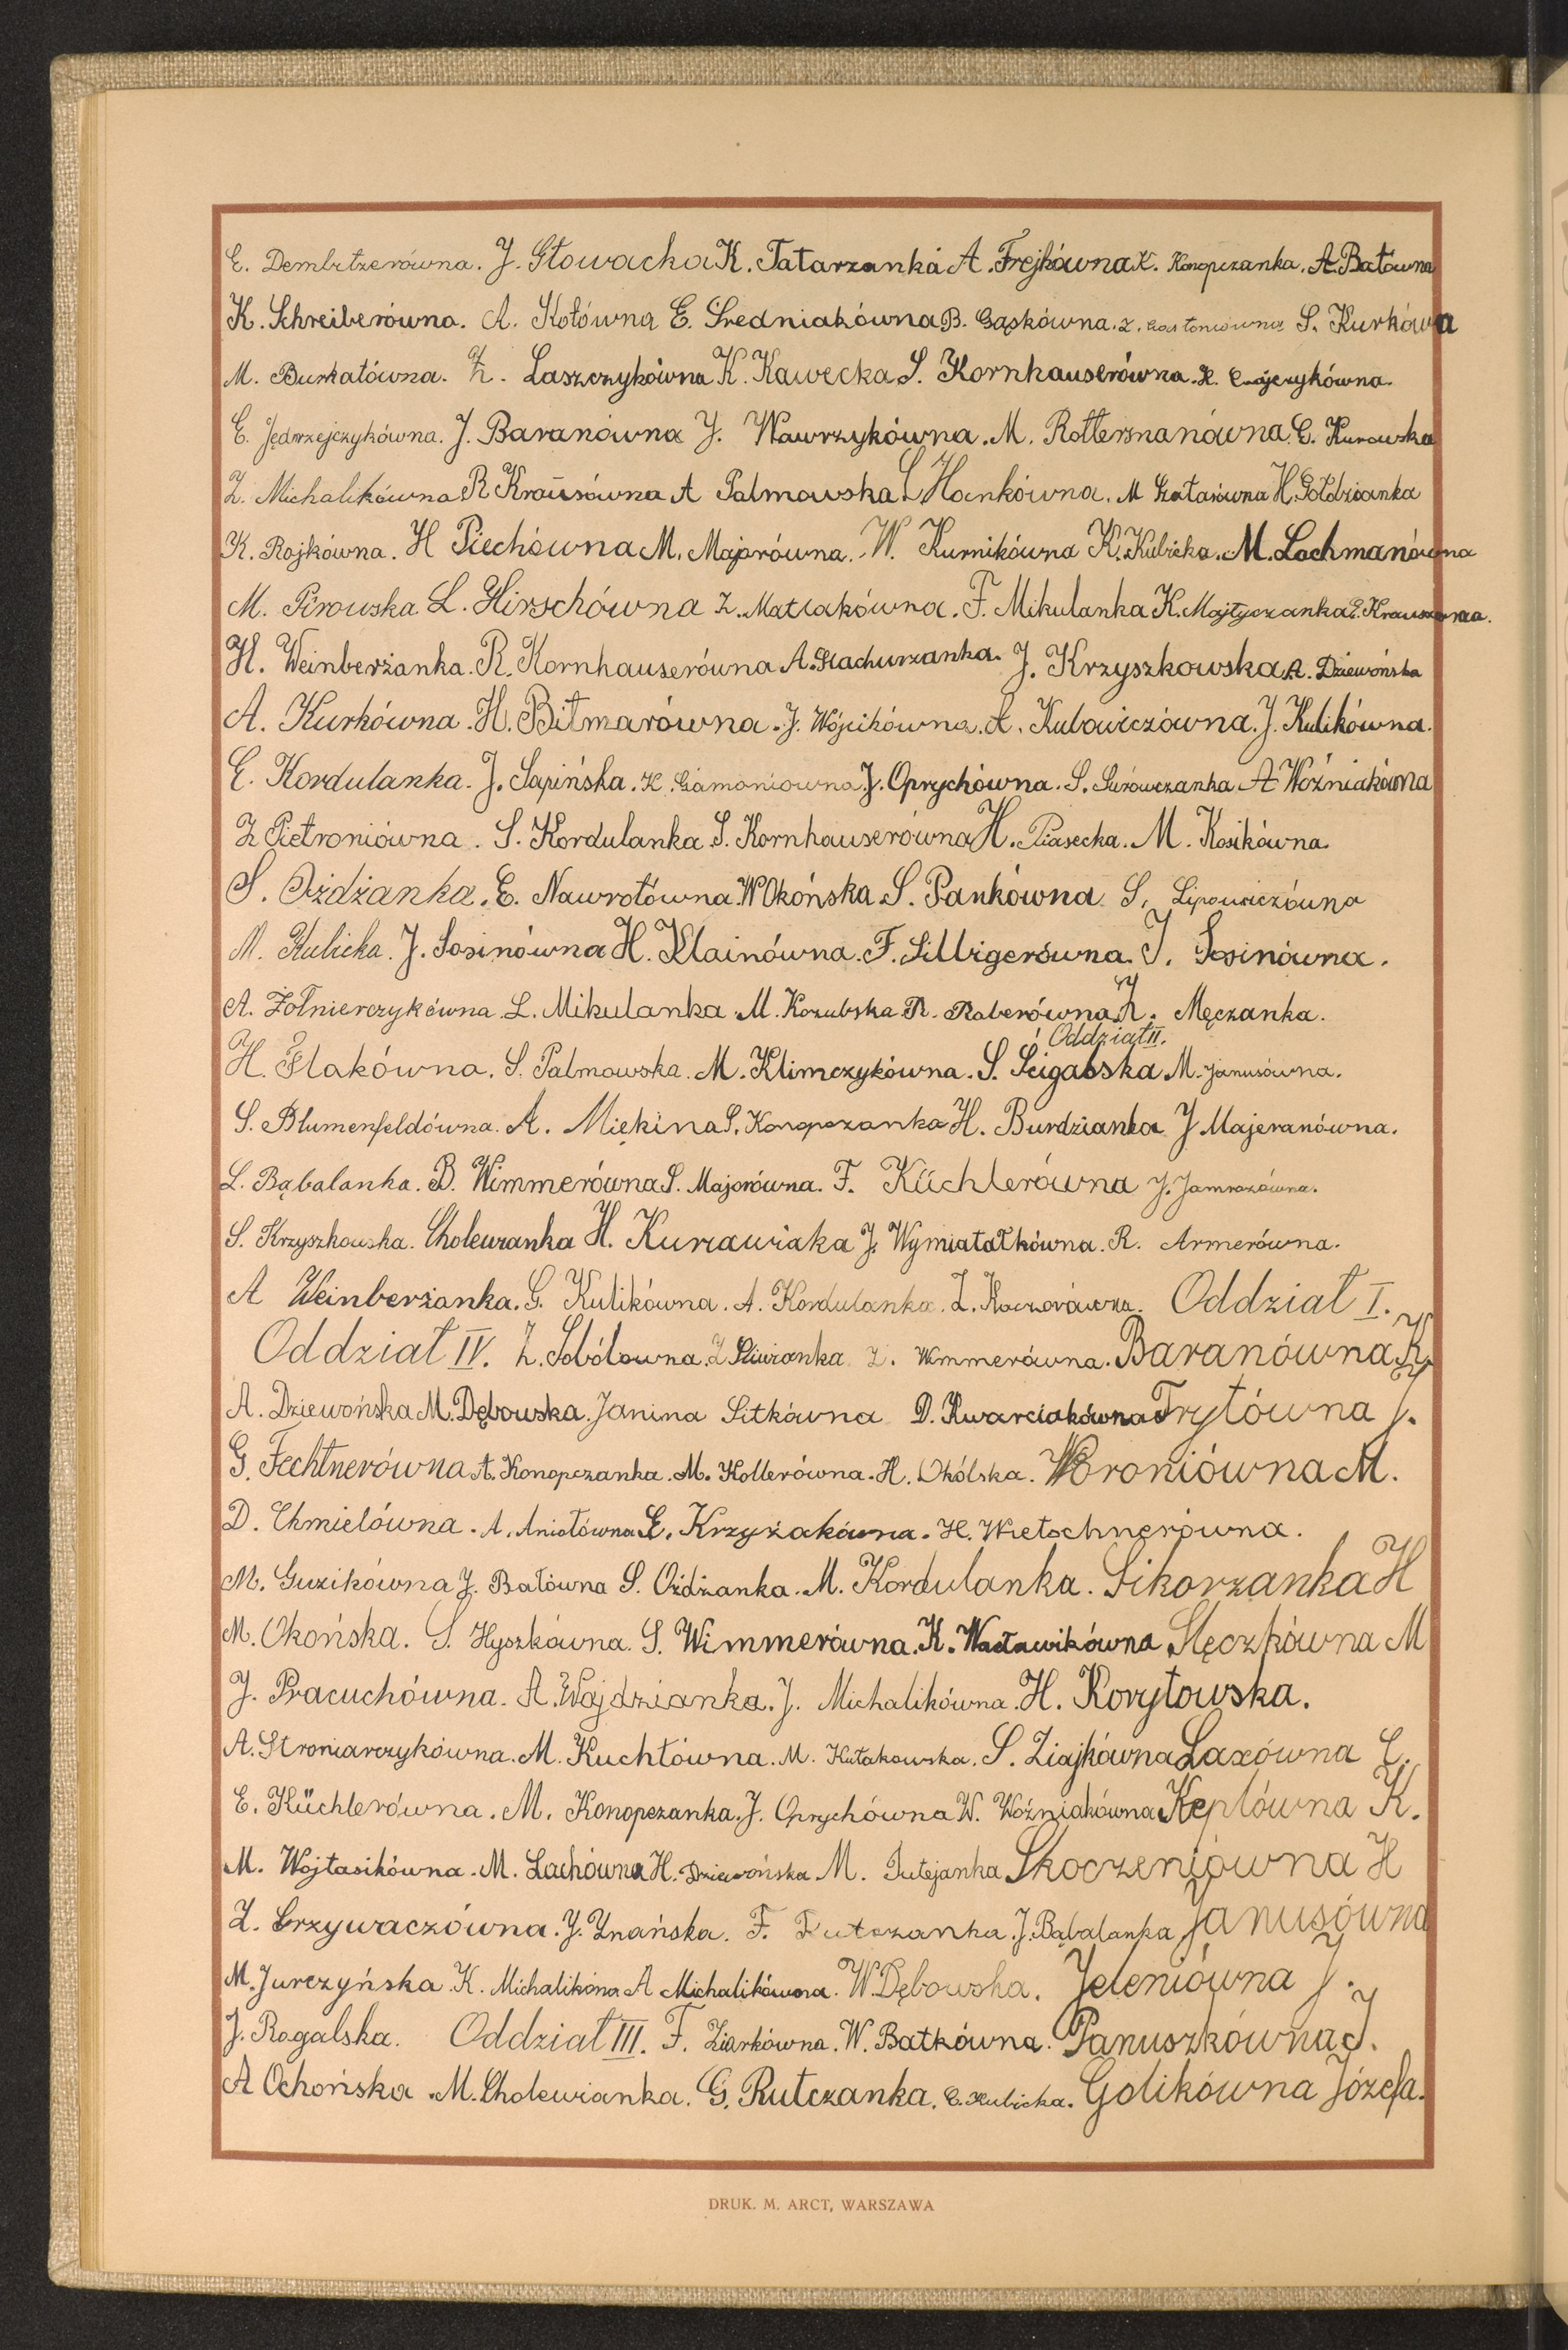 E. Dembitzerówna. J. Głowacka K. Tatarzanka A. Frejkówna K. Konopczanka. A. Batówna
K. Schreiberówna. A. Kotówna E. Średniakówna B. Gąskówna. Z. Gastoniówna S. Kurkówna
M. Burkatówna. Z. Laszczykówna K. Kawecka S. Kornhauserówna. H.
E. Jędrzejczykówna. J. Baranówna J. Wawrzykówna. M. Rottersmanówna. E. Kurowska
Z. Michalikówna R Krausówna A Palmowska L Hankówna. M H. Gołdzianka
K. Rojkówna. H Piechówna M. Majorówna. W. Kurnikówna K. Kubicka. M. Lachmanówna
M. Pirowska L. Hirschówna Z. Matlakówna. F. Mikulanka K. Majtyczanka L. Krausówna.
H. Weinberżanka. R. Kornhauserówna A. Stachurzanka. J. Krzyszkowska A. Dziewońska
A. Kurkówna. H. Bitmarówna. J. Wójcikówna. A. Kubowiczówna. J. Kulikówna.
E. Kordulanka. J. Sapińska. K. Gamoniówna J. Oprychówna. S. Surówczanka A Woźniakówna
Z Pietroniówna. S. Kordulanka S. Kornhauserówna H. Piasecka. M. Kosikówna.
S. Ożdżanka. E. Nawrotówna. W Okońska S. Pankówna S. Lipowiczówna
M. Kubicka. J. Sosinówna H. Klainówna. F. Silbigerówna. J. Sosinówna.
A. Żołnierczykówna L. Mikulanka M. Kozubska R. Raberówna Z. Męczanka.
Oddział II.
H. Flakówna. S. Palmowska. M. Klimczykówna. S. Ścigalska M. Janusówna.
S. Blumenfeldówna. A. Miękina S. Konopczanka H. Burdzianka J Majeranówna.
L. Bąbalanka. B. Wimmerówna S. Majorówna. F. Küchlerówna J. Jamrozówna.
S. Krzyszkowska. Cholewianka H. Kurcawiaka J. Wymiatałkówna. R. Armerówna.
A Weinberżanka. G. Kulikówna. A. Kordulanka. Z. Kaczorówna. Oddział I.
Oddział IV. Z. Sobólowna. Z Śliwianka Z. Wimmerówna. Baranówna K.
A. Dziewońska M. Dębowska. Janina Sitkówna D. Kwarciakówna Frytówna J.
G. Fechtnerówna A. Konopczanka. M. Kollerówna. H. Okólska. Woroniówna M.
D. Chmielówna. A. Aniołówna E. Krzyżakówna. H. Wietschnerówna.
M. Guzikówna J. Batówna S. Ożdżanka. M. Kordulanka. Sikorzanka H
M. Okońska. S. Hyszkówna. S. Wimmerówna. K. Wacławikówna Ślęczkówna M
J. Pracuchówna. A. Wajdzianka. J. Michalikówna. H. Korytowska.
A. Stroniarczykówna. M. Kuchtówna. M. Kułakowska. S. Ziajkówna Laxówna E.
E. Küchlerówna. M. Konopczanka. J. Oprychówna W. Woźniakówna Keplówna K.
M. Wojtasikówna. M. Lachówna H. Dziewońska M. Putejanka Skoczeniówna H
Z. Grzywaczówna. J. Znańska. F. Rutczanka. J. Bąbalanka Janusówna
M. Jurczyńska K. Michalikóna A Michalikówna. W. Dębowska. Jeleniówna J.
J. Rogalska. Oddział III. F. Ziarkówna. W. Batkówna. Panuszkówna J.
A Ochońska. M. Cholewianka. G. Rutczanka. E. Kubicka. Golikówna Józefa.
DRUK. M. ARCT, WARSZAWA